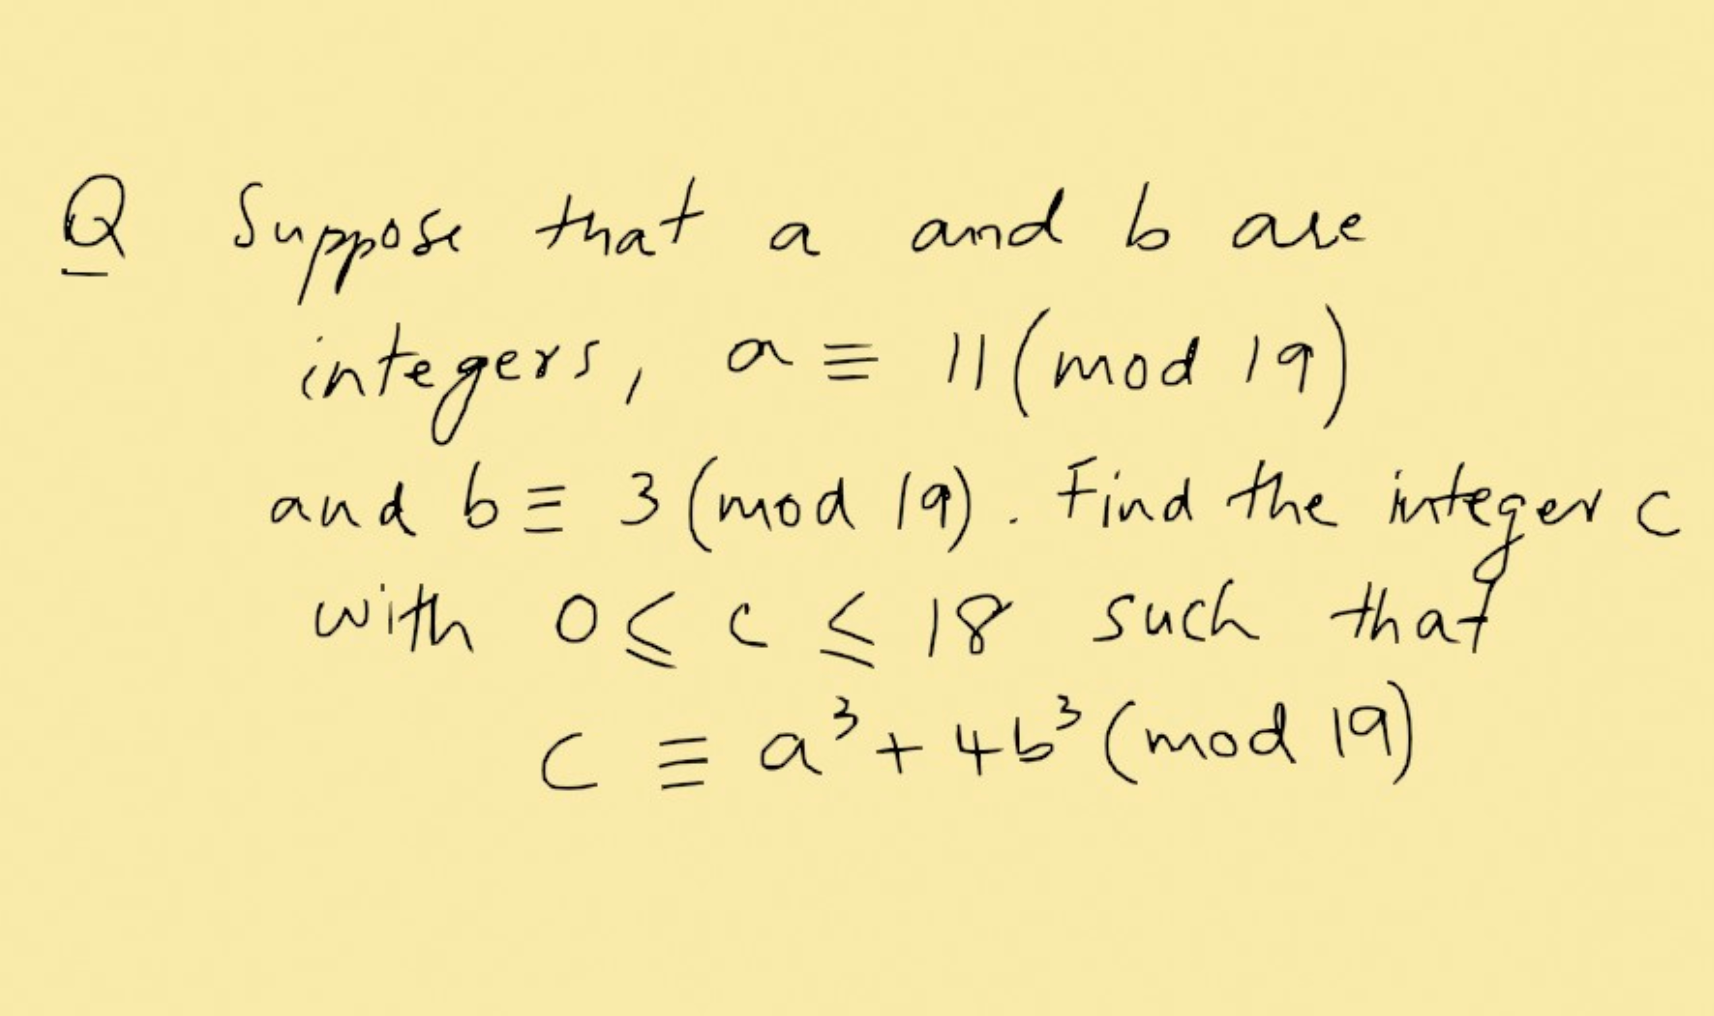 Q Suppose that a and b are
integers, a ≡ 11 (mod 19)
and b ≡ 3 (mod 19). Find the integer c
with 0 ≤ c ≤ 18 such that
c ≡ a³ + 4b³ (mod 19)